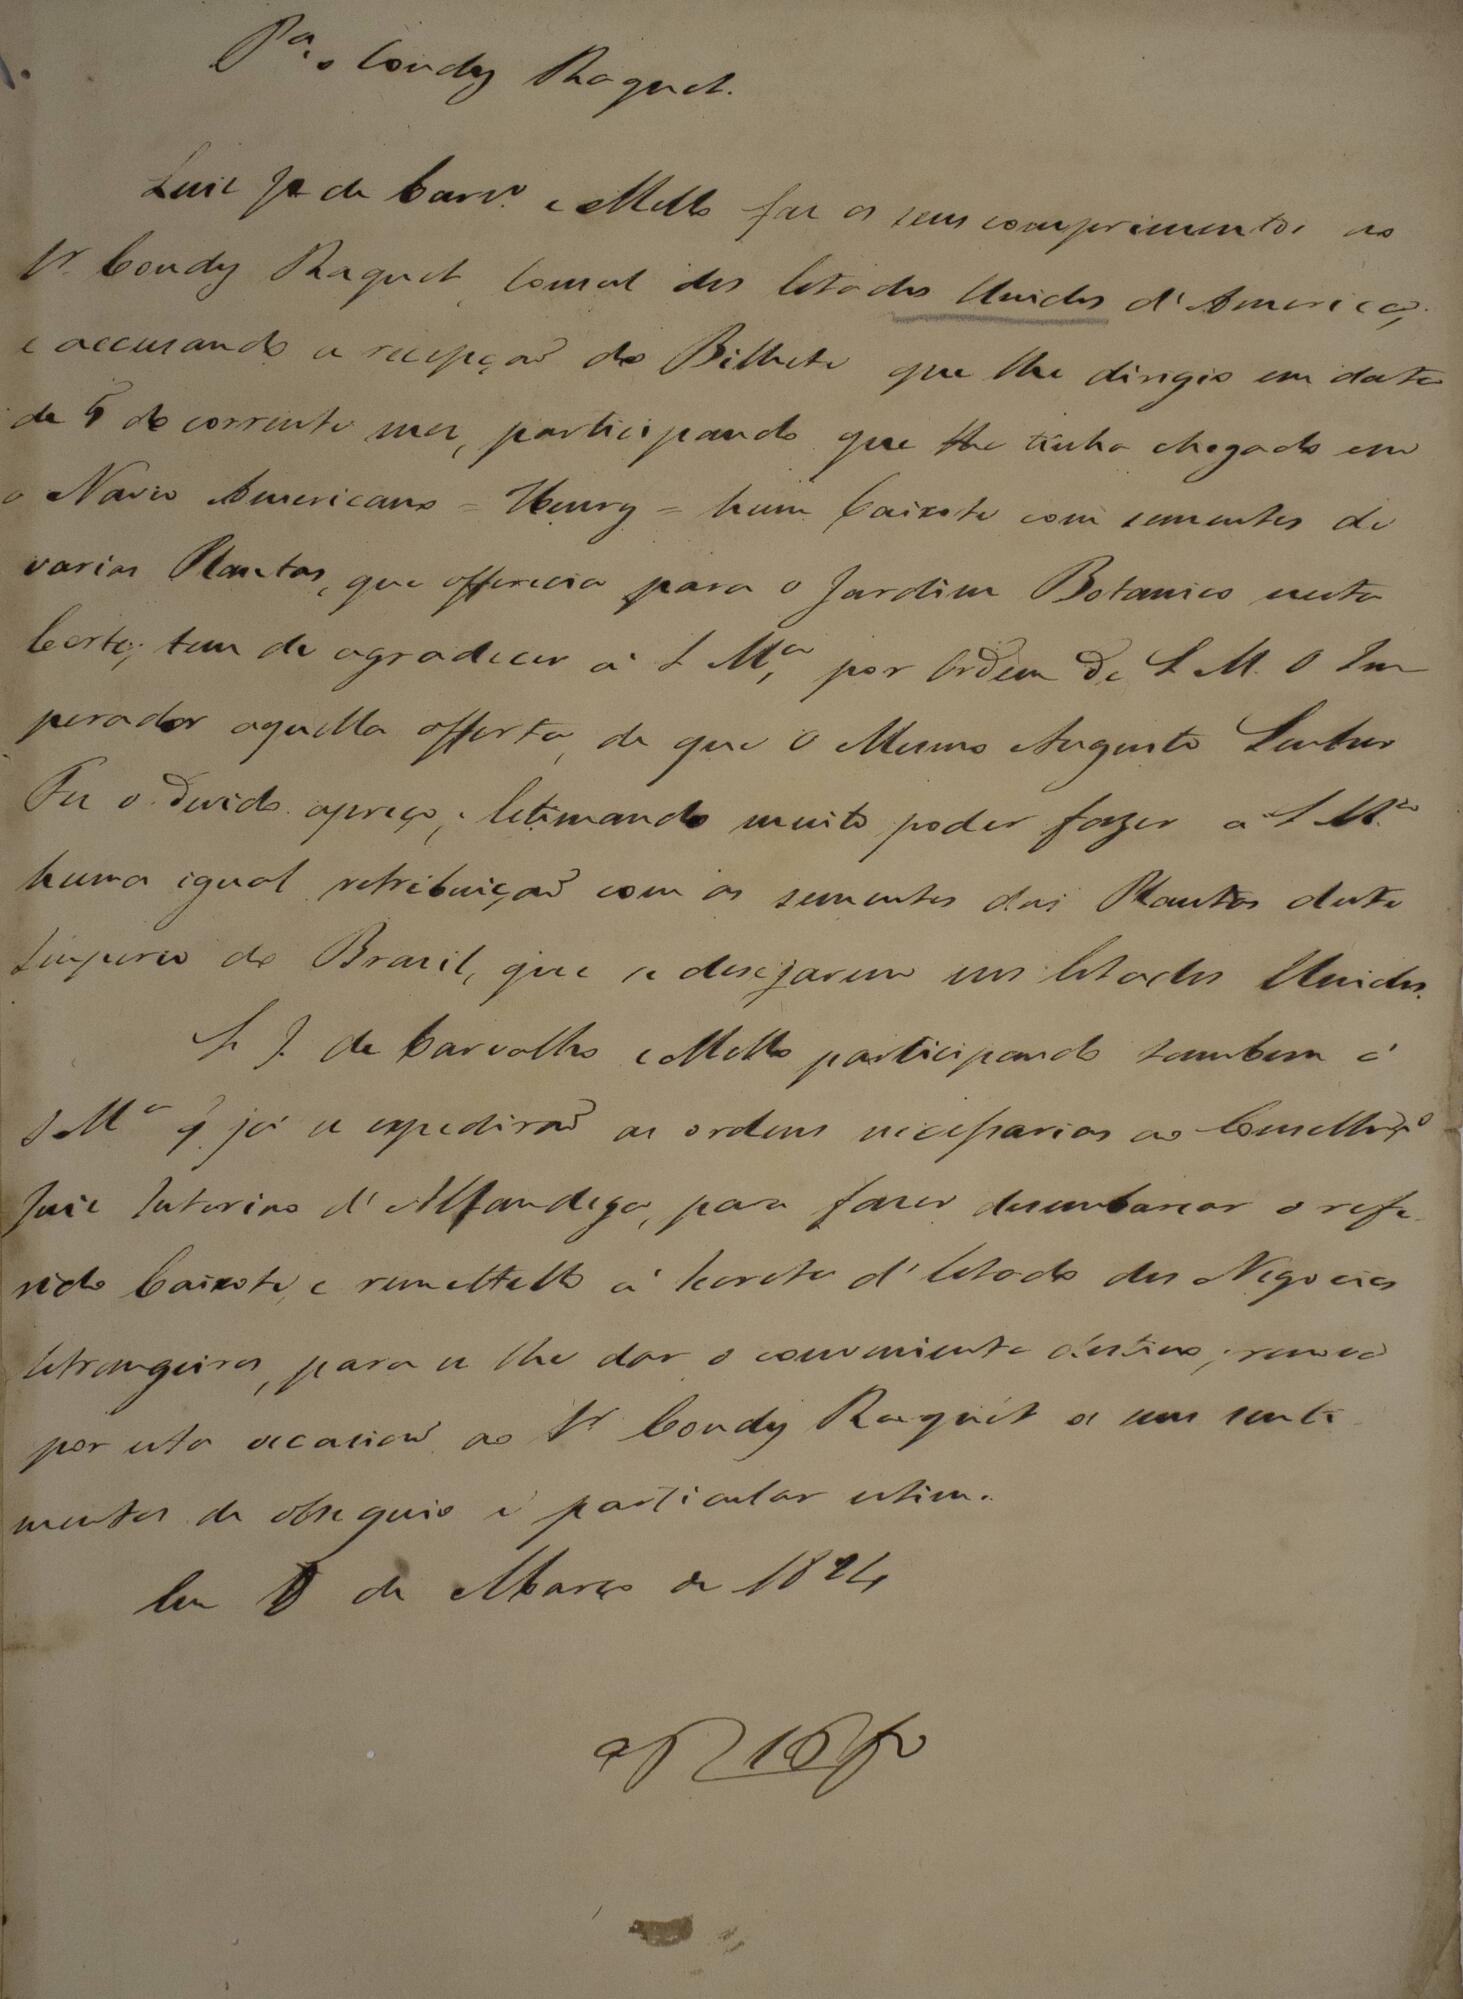 Pa. o Condy Raguet.
Luiz Je de Carvo. e Mello faz os seus comprimentos ao
Sr. Condy Raguet, Consul dos Estados Unidos d'America,
e accusando a recepção do Bilhete que lhe dirigio em data
de 5 do corrente mez, participando que lhe tinha chegado em
o Navio Americano = Henry = hum Caixote com sementes de
varias Plantas, que offerecia para o Jardim Botanico nesta
Corte; tem de agradecer á S Mce, por Ordem de S. M. O Im
perador aquella offerta, de que O Mesmo Augusto Senhor
Fez o devido apreço; Estimando muito poder fazer a S Mce
huma igual retribuição com as sementes das Plantas deste
Imperio do Brazil, que se desejarem nos Estados Unidos.
L. J. de Carvalho e Mello participando tambem á
S Mce q. já se expedirão as ordens necessarias ao Conselhro
Juiz Interino d'Alfandega, para fazer desembarcar o refe-
rido Caixote, e remettello á Secreta d'Estado dos Negocios
Estrangeiros, para se lhe dar o conveniente destino; renova
por esta occasião ao Sr Condy Raguet os seus senti
mentos de obsequio e particular estim.
Em 8 de Março de 1824